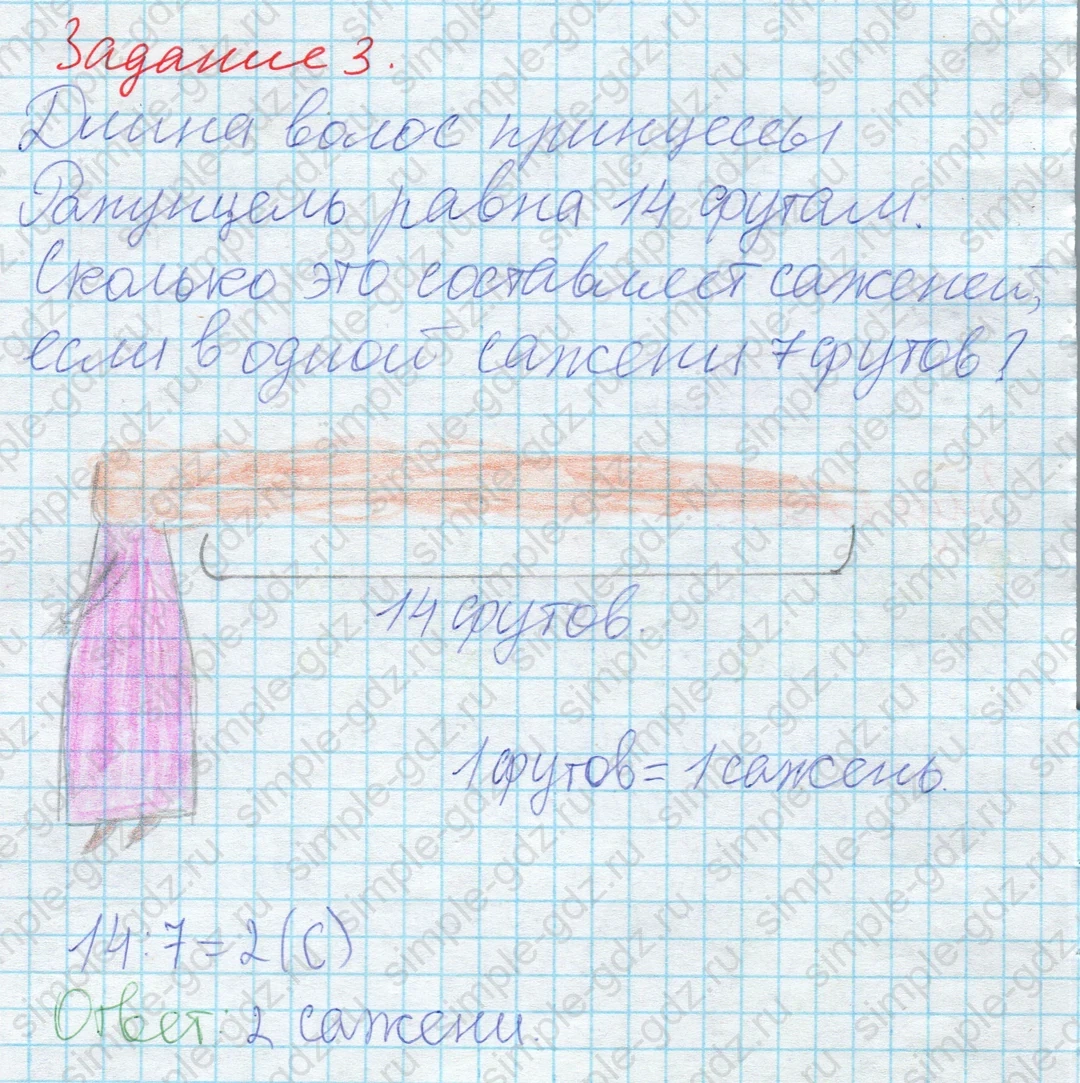 Задание 3.
Длина волос принцессы
Рапунцель равна 14 футам.
Сколько это составляет саженей,
если в одной сажени 7 футов?
14 футов.
1 футов = 1 сажень.
14 : 7 = 2 (С)
Ответ: 2 сажени.
simple-gdz.ru